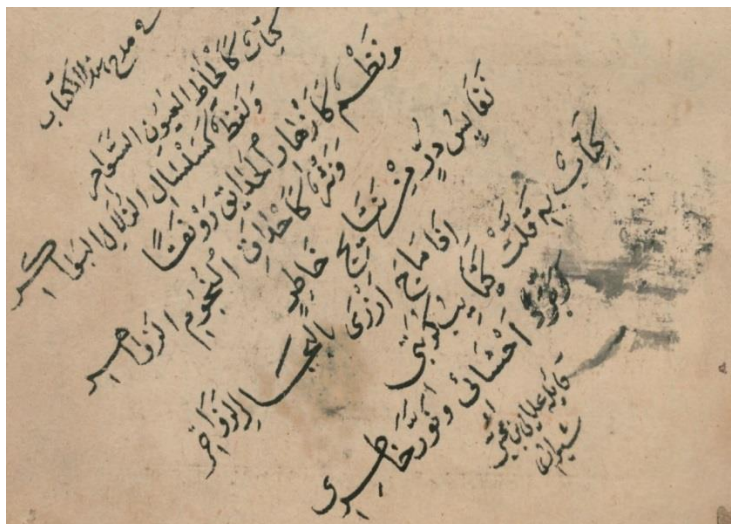 في مدح هذا الكتاب
كتاب كألحاظ العيون السواحر
ولفظ كسلسال الزلال البواكر
ونظم كأزهار الحدايق رونقا
ونثر كأحداق النجوم الزواهر
نفايس در من نتايج خاطر
اذا ماج ازرى بالبحار الزواخر
كتاب به قلت كتايب كربتي
احشائي ونور خاطري
قايله علي بن